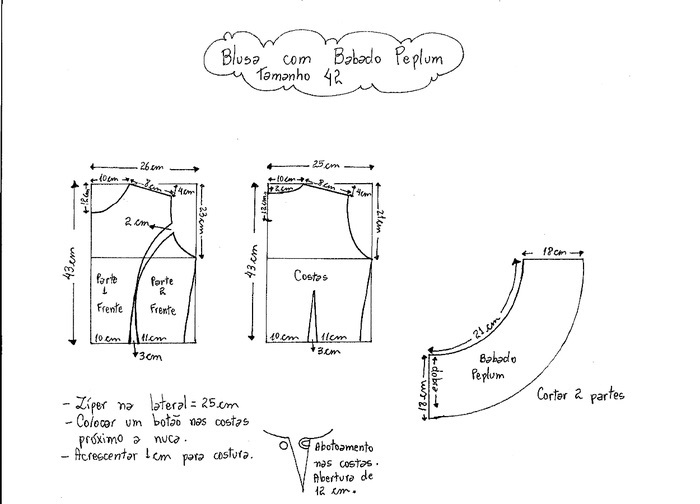 Blusa com Babado Peplum
Tamanho 42
26 cm
10cm
8cm
4cm
12cm
23 cm
2 cm
43 cm
Parte 1 Frente
Parte 2 Frente
10 cm
11 cm
3 cm
25 cm
10cm
2 cm
8 cm
4cm
12cm
21cm
43 cm
Costas
10 cm
11cm
3 cm
18cm
21cm
18cm
dobra
Babado
Peplum
Cortar 2 partes
- Zíper na lateral = 25 cm
- Colocar um botão nas costas
próximo a nuca.
- Acrescentar 1cm para costura.
Abotoamento
nas costas.
Abertura de
12 cm.